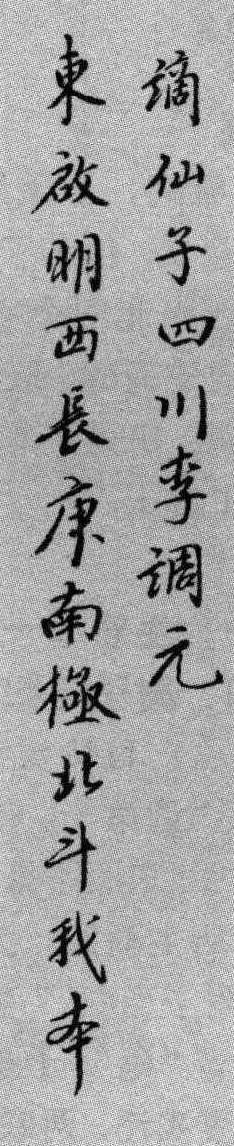 謫仙子四川李調元
東啟明西長庚南極北斗我本